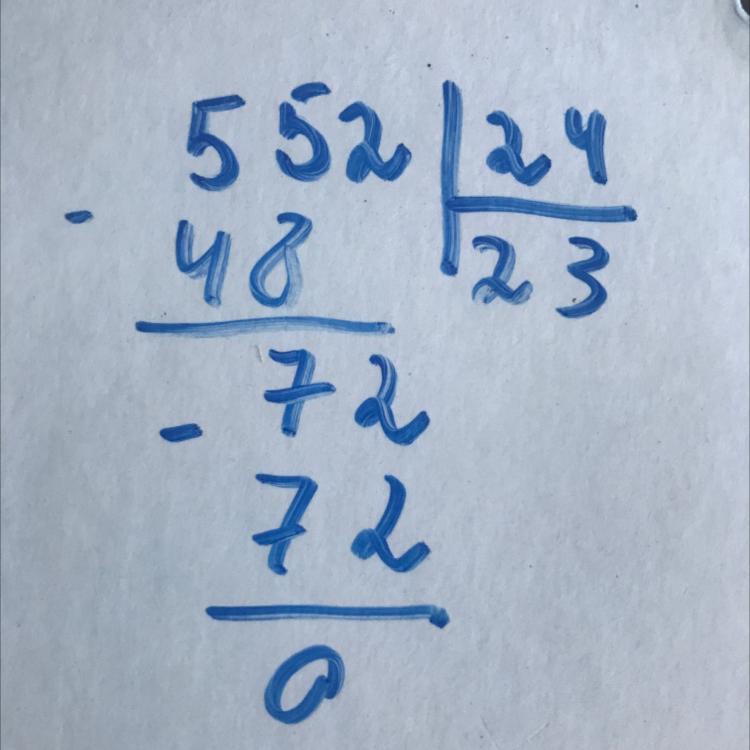 552 | 24
- 48 | 23
72
- 72
0